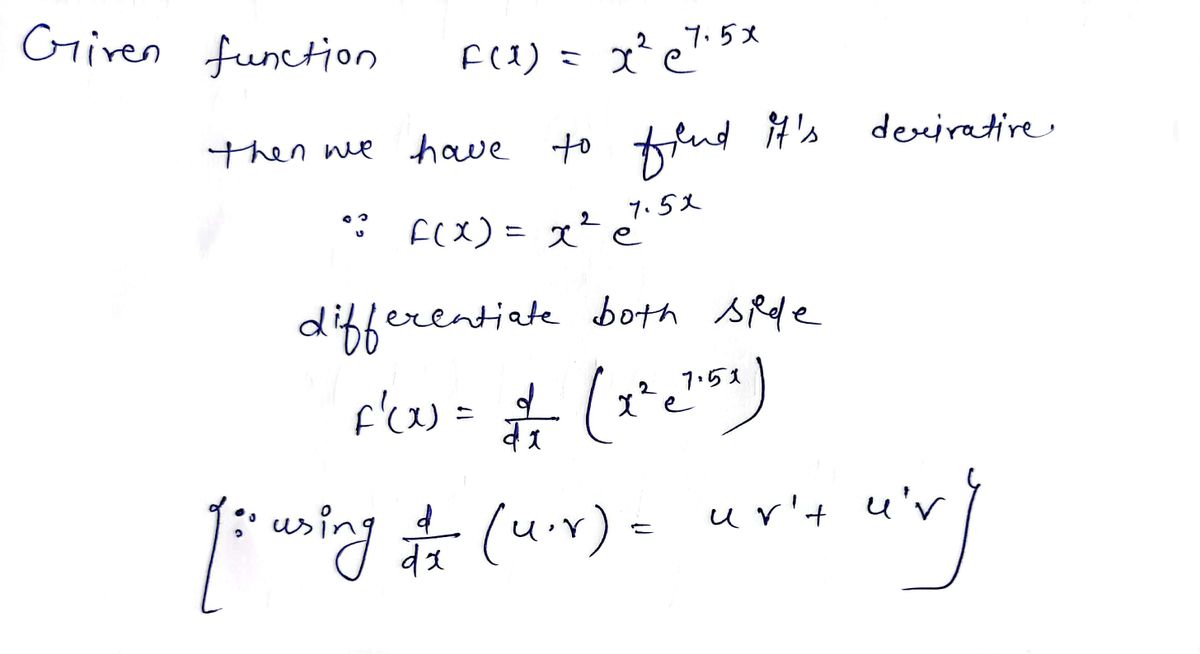 Given function F(x) = x² e^7.5x
then we have to find it's derivative.
∵ F(x) = x² e^7.5x
differentiate both side
F'(x) = d/dx (x² e^7.5x)
[∵ using d/dx (u.v) = uv' + u'v]